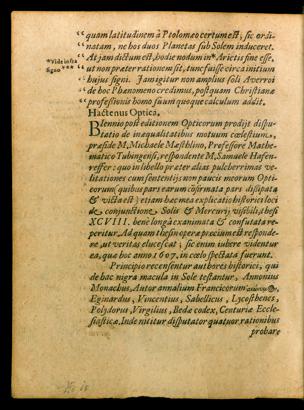 “quam latitudinem à Ptolomeo certum est; sic ordi-
“natam, ne hos duos Planetas sub Solem induceret.
“At jam dictum est, hodie nodum in* Arietis fine esse,
*Vide infra
“ut non præter rationem sit, tunc fuisse circa initium
signo
“hujus signi. Jam igitur non amplius soli Averroi
“de hoc Phænomeno credimus, postquam Christianæ
“professionis homo suum quoque calculum addit.
Hactenus Optica,
Biennio post editionem Opticorum prodijt dispu-
tatio de inæqualitatibus motuum cœlestium,
præside M. Michaele Mæsthlino, Professore Mathe-
matico Tubingensi, respondente M. Samuele Hafen-
reffer: quo in libello præter alias pulcherrimas ve-
litationes cum sententijs non paucis meorum Opti-
corum (quibus pars earum cõfirmata pars dissipata
& victa est) etiam hæc mea explicatio historici loci
de conjunctione Solis & Mercurij visibili, thesi
XCVIII. bene longa examinata & confutata re-
peritur. Ad quam thesin operæ precium est responde-
re, ut veritas elucescat; sic enim iubere videntur
ea, quæ hoc anno 1607. in cœlo spectata fuerunt.
Principio recensentur authores historici, qui
de hac nigra macula in Sole testantur, Annonius
Monachus, Autor annalium Francicorum
Eginardus, Vincentius, Sabellicus, Lycosthenes,
Polydorus, Virgilius, Bedæ codex, Centuriæ Eccle-
siasticæ. Inde nititur disputator quatuor rationibus
probare